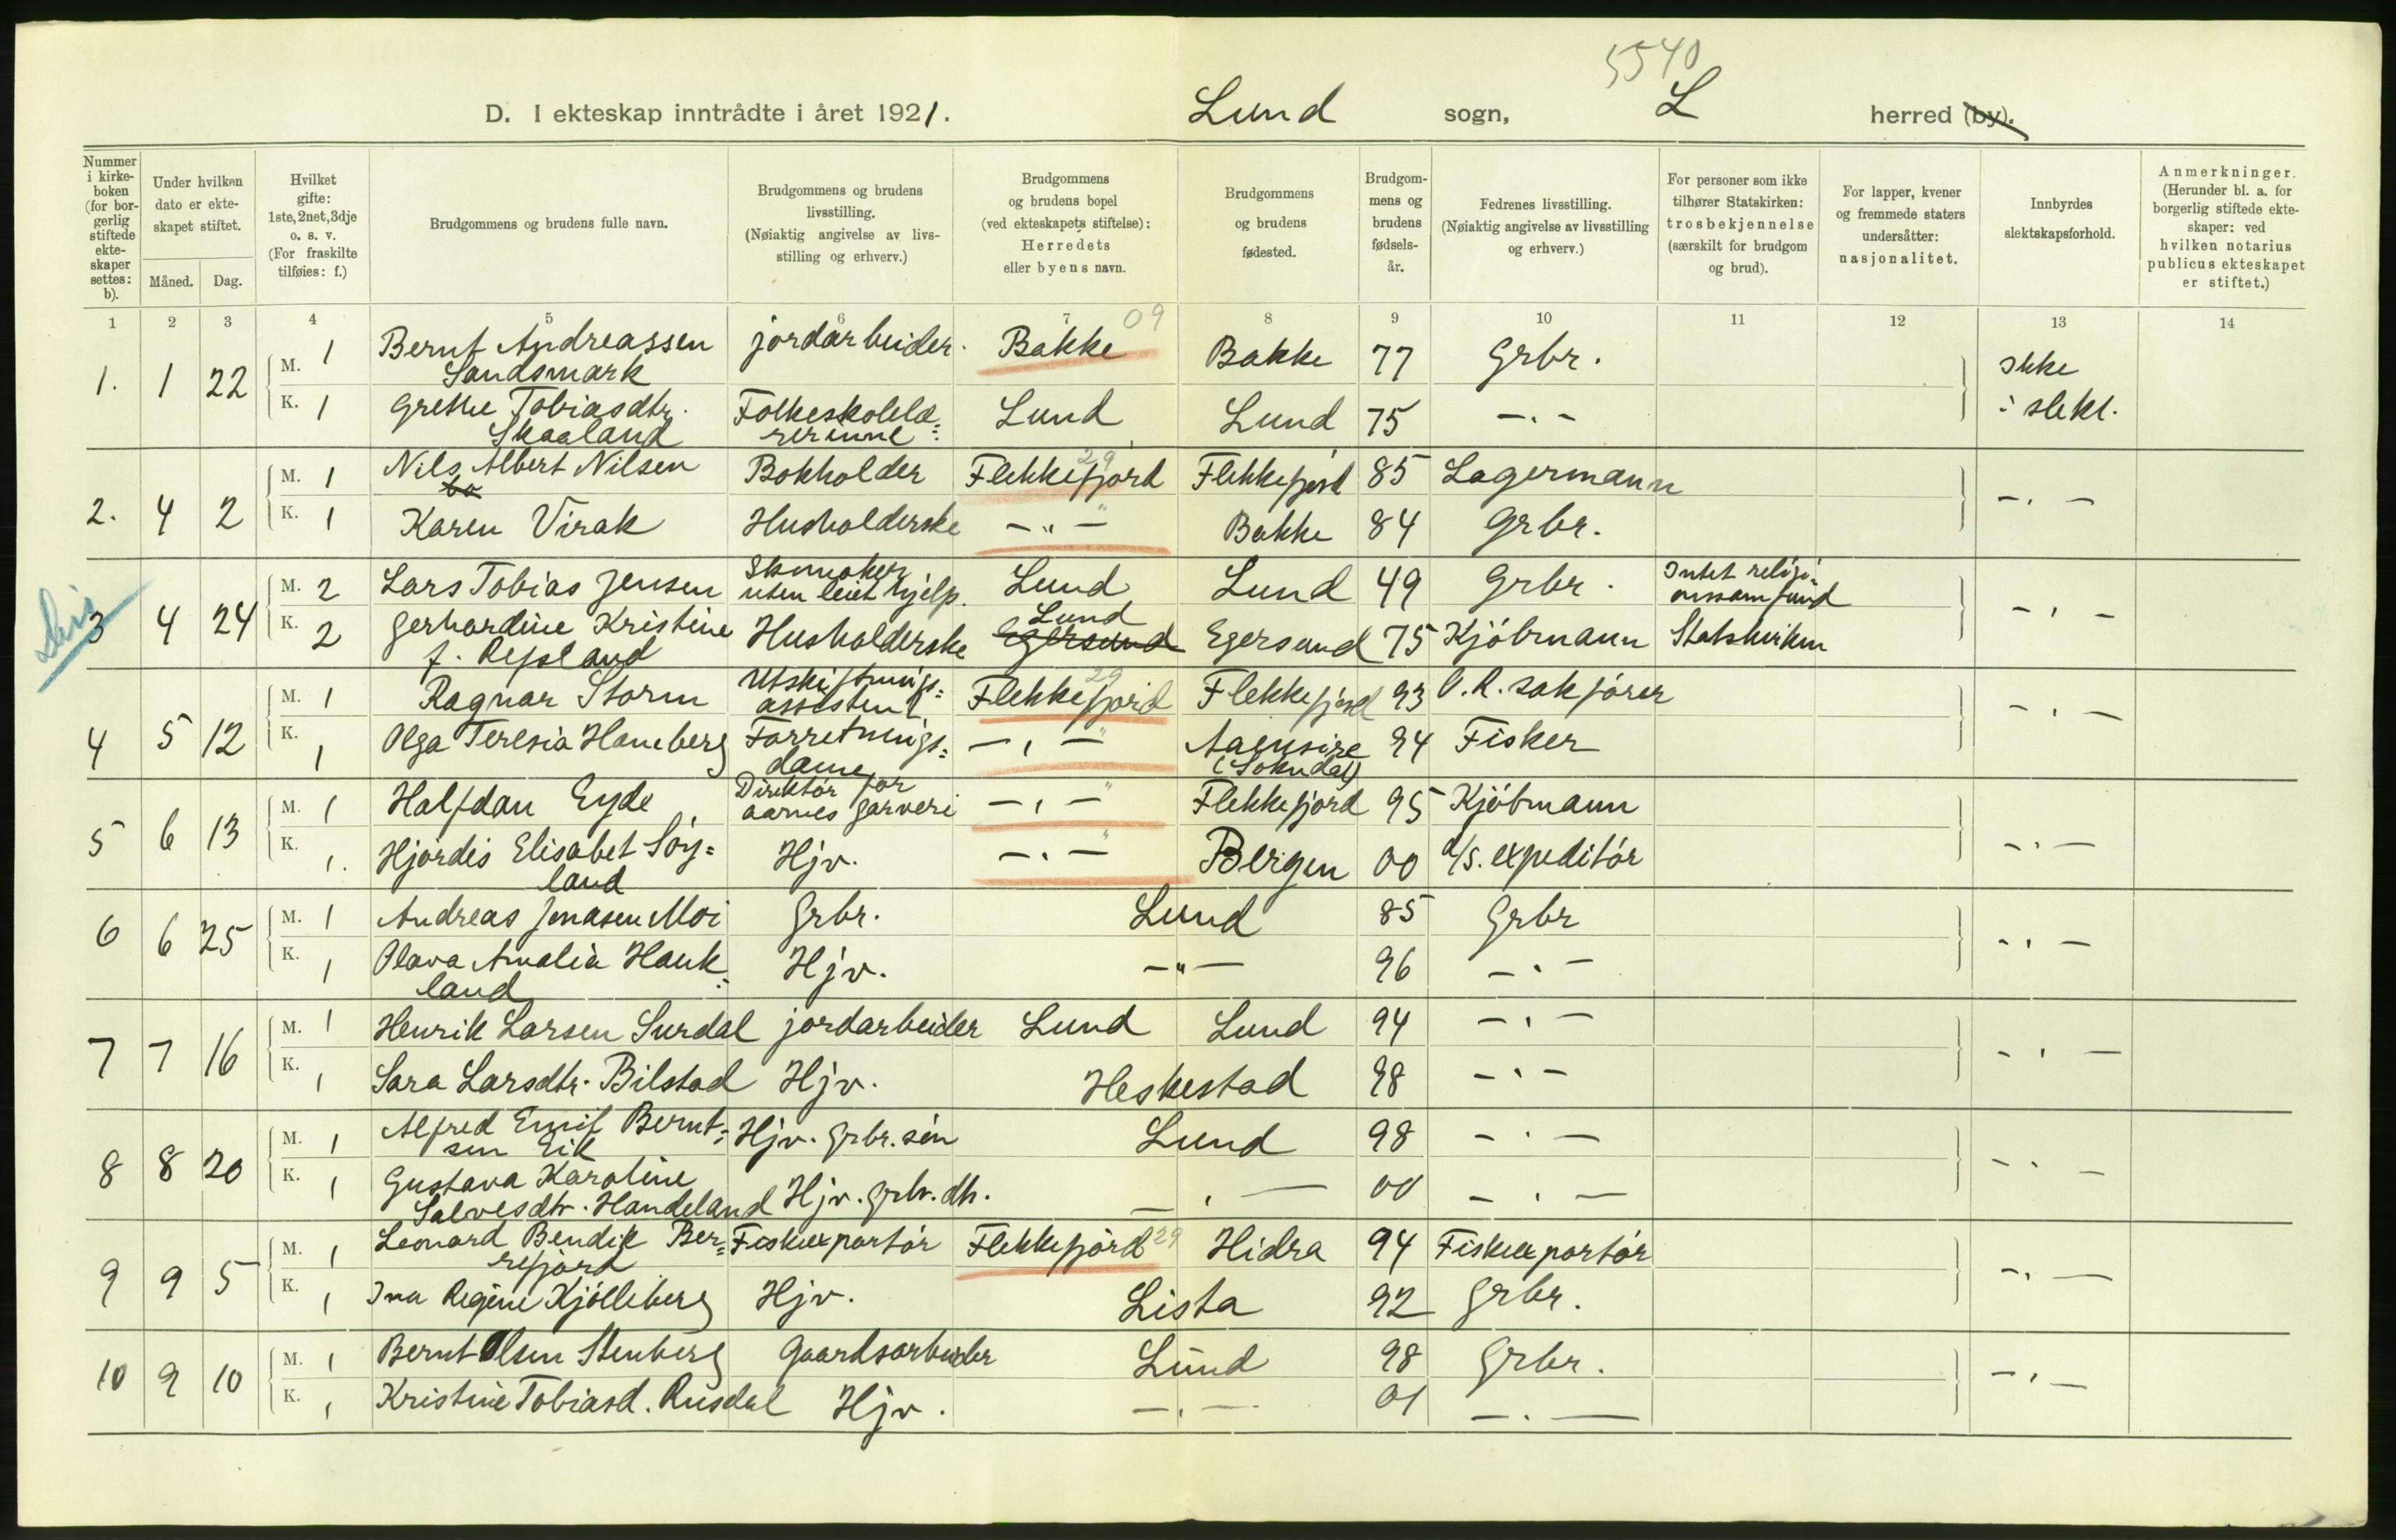 5540
D. I ekteskap inntrådte i året 1921. Lund sogn, L herred (by).
Nummer i kirke-boken (for bor-gerlig stiftede ekte-skaper settes: b).
Under hvilken dato er ekte-skapet stiftet.
Måned. Dag.
Hvilket gifte: 1ste, 2net, 3dje o. s. v. (For fraskilte tilføies: f.)
Brudgommens og brudens fulle navn.
Brudgommens og brudens livsstilling. (Nøiaktig angivelse av livs-stilling og erhverv.)
Brudgommens og brudens bopel (ved ekteskapets stiftelse): Herredets eller byens navn.
Brudgommens og brudens fødested.
Brudgom-mens og brudens fødsels-år.
Fedrenes livsstilling. (Nøiaktig angivelse av livsstilling og erhverv.)
For personer som ikke tilhører Statskirken: trosbekjennelse (særskilt for brudgom og brud).
For lapper, kvener og fremmede staters undersåtter: nasjonalitet.
Innbyrdes slektskapsforhold.
Anmerkninger. (Herunder bl. a. for borgerlig stiftede ekte-skaper: ved hvilken notarius publicus ekteskapet er stiftet.)
1 2 3 4 5 6 7 8 9 10 11 12 13 14
09
1. 1 22 M. 1 Bernt Andreassen Sandsmark jordarbeider. Bakke Bakke 77 Grbr. Ikke i slekt.
K. 1 Grethe Tobiasdtr. Skaaland Folkeskolelæ= rerinne Lund Lund 75 -.-
2. 4 2 M. 1 Nils Albert Nilsen Bokholder Flekkefjord 29 Flekkefjord 85 Lagermann -.-
K. 1 Karen Virak Husholderske -"- Bakke 84 Grbr.
3 4 24 M. 2 Lars Tobias Jensen Skomaker uten leiet hjelp. Lund Lund 49 Grbr. Intet religi= onssamfund -.-
K. 2 Gerhardine Kristine f. Refsland Husholderske Lund Egersund Egersund 75 Kjöbmann Statskirken
4 5 12 M. 1 Ragnar Storm Utskiftnings= assistent Flekkefjord 29 Flekkefjord 93 O.R. sakförer -.-
K. 1 Olga Teresia Haneberg Forretnings= dame -.- Aaensire (Sokndal) 94 Fisker
5 6 13 M. 1 Halfdan Eyde Direktör for aarnes garveri -.- Flekkefjord 95 Kjöbmann -.-
K. 1. Hjördis Elisabet Söy= land Hjv. -.- Bergen 00 d/s. expeditör
6 6 25 M. 1 Andreas Jonasen Moi Grbr. Lund 85 Grbr -.-
K. 1 Olava Amalia Hauk= land Hjv. -"- 96 -.-
7 7 16 M. 1 Henrik Larsen Surdal jordarbeider Lund Lund 94 -.- -.-
K. 1 Sara Larsdtr. Bilstad Hjv. Heskestad 98 -.-
8 8 20 M. 1 Alfred Emil Bernt= sen Eik Hjv. Grbr. sön Lund 98 -.- -.-
K. 1 Gustava Karoline Salvesdtr. Handeland Hjv. grbr. dtr. -.- 00 -.-
9 9 5 M. 1 Leonard Bendik Ber= refjord Fiskeexportör Flekkefjord 29 Hidra 94 Fiskeexportör -.-
K. 1 Ina Regine Kjölleberg Hjv. Lista 92 Grbr.
10 9 10 M. 1 Bernt Olsen Stenberg Gaardsarbeider Lund 98 Grbr. -.-
K. 1 Kristine Tobiasd. Rusdal Hjv. -.- 01 -.-